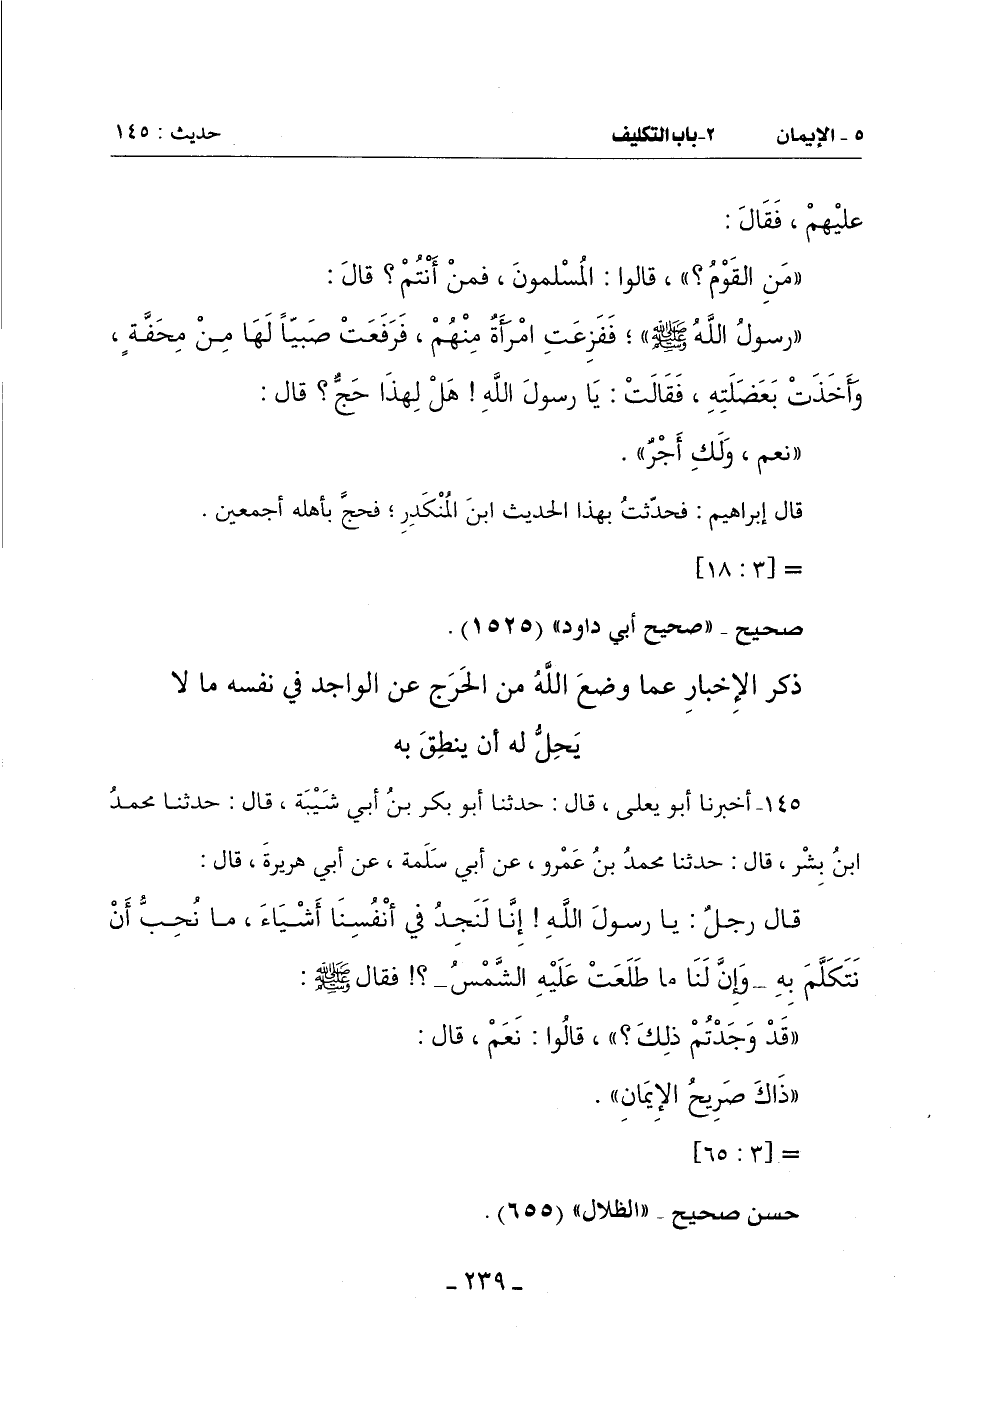 ٥ - الإيمان ٢-باب التكليف حديث : ١٤٥
عليْهمْ ، فَقَالَ :
«مَنِ القَوْمُ؟» ، قالوا : المُسْلمونَ ، فمنْ أَنْتُمْ؟ قالَ :
«رسولُ اللَّهُ ﷺ» ؛ فَفَزِعَتِ امْرَأَةٌ مِنْهُمْ ، فَرَفَعَتْ صَبيّاً لَهَا مِنْ مِحَفَّةٍ ،
وَأَخَذَتْ بَعَضَلَتِهِ ، فَقَالَتْ : يَا رسولَ اللَّهِ ! هَلْ لِهذَا حَجٌّ؟ قال :
«نعم ، وَلَكِ أَجْرٌ» .
قال إبراهيم : فحدّثتُ بهذا الحديث ابنَ المُنْكَدِرِ ؛ فحجَّ بأهله أجمعين .
= [٣ : ١٨]
صحيح - «صحيح أبي داود» (١٥٢٥) .
ذكر الإخبارِ عما وضعَ اللَّهُ من الحَرَجِ عن الواجد في نفسه ما لا
يَحِلُّ له أن ينطِقَ به
١٤٥- أخبرنا أبو يعلى ، قال : حدثنا أبو بكر بنُ أبي شَيْبَة ، قال : حدثنا محمدُ
ابنُ بِشْر ، قال : حدثنا محمدُ بنُ عَمْرو ، عن أبي سَلَمة ، عن أبي هريرةَ ، قال :
قال رجلٌ : يا رسولَ اللَّهِ ! إِنَّا لَنَجِدُ في أنْفُسِنَا أَشْيَاءَ ، ما نُحِبُّ أَنْ
نَتَكَلَّمَ بِهِ -وَإِنَّ لَنَا ما طَلَعَتْ عَلَيْهِ الشَّمْسُ- ؟! فقال ﷺ :
«قَدْ وَجَدْتُمْ ذلِكَ؟» ، قالُوا : نَعَمْ ، قال :
«ذَاكَ صَرِيحُ الإِيمَانِ» .
= [٣ : ٦٥]
حسن صحيح - «الظلال» (٦٥٥) .
- ٢٣٩ -